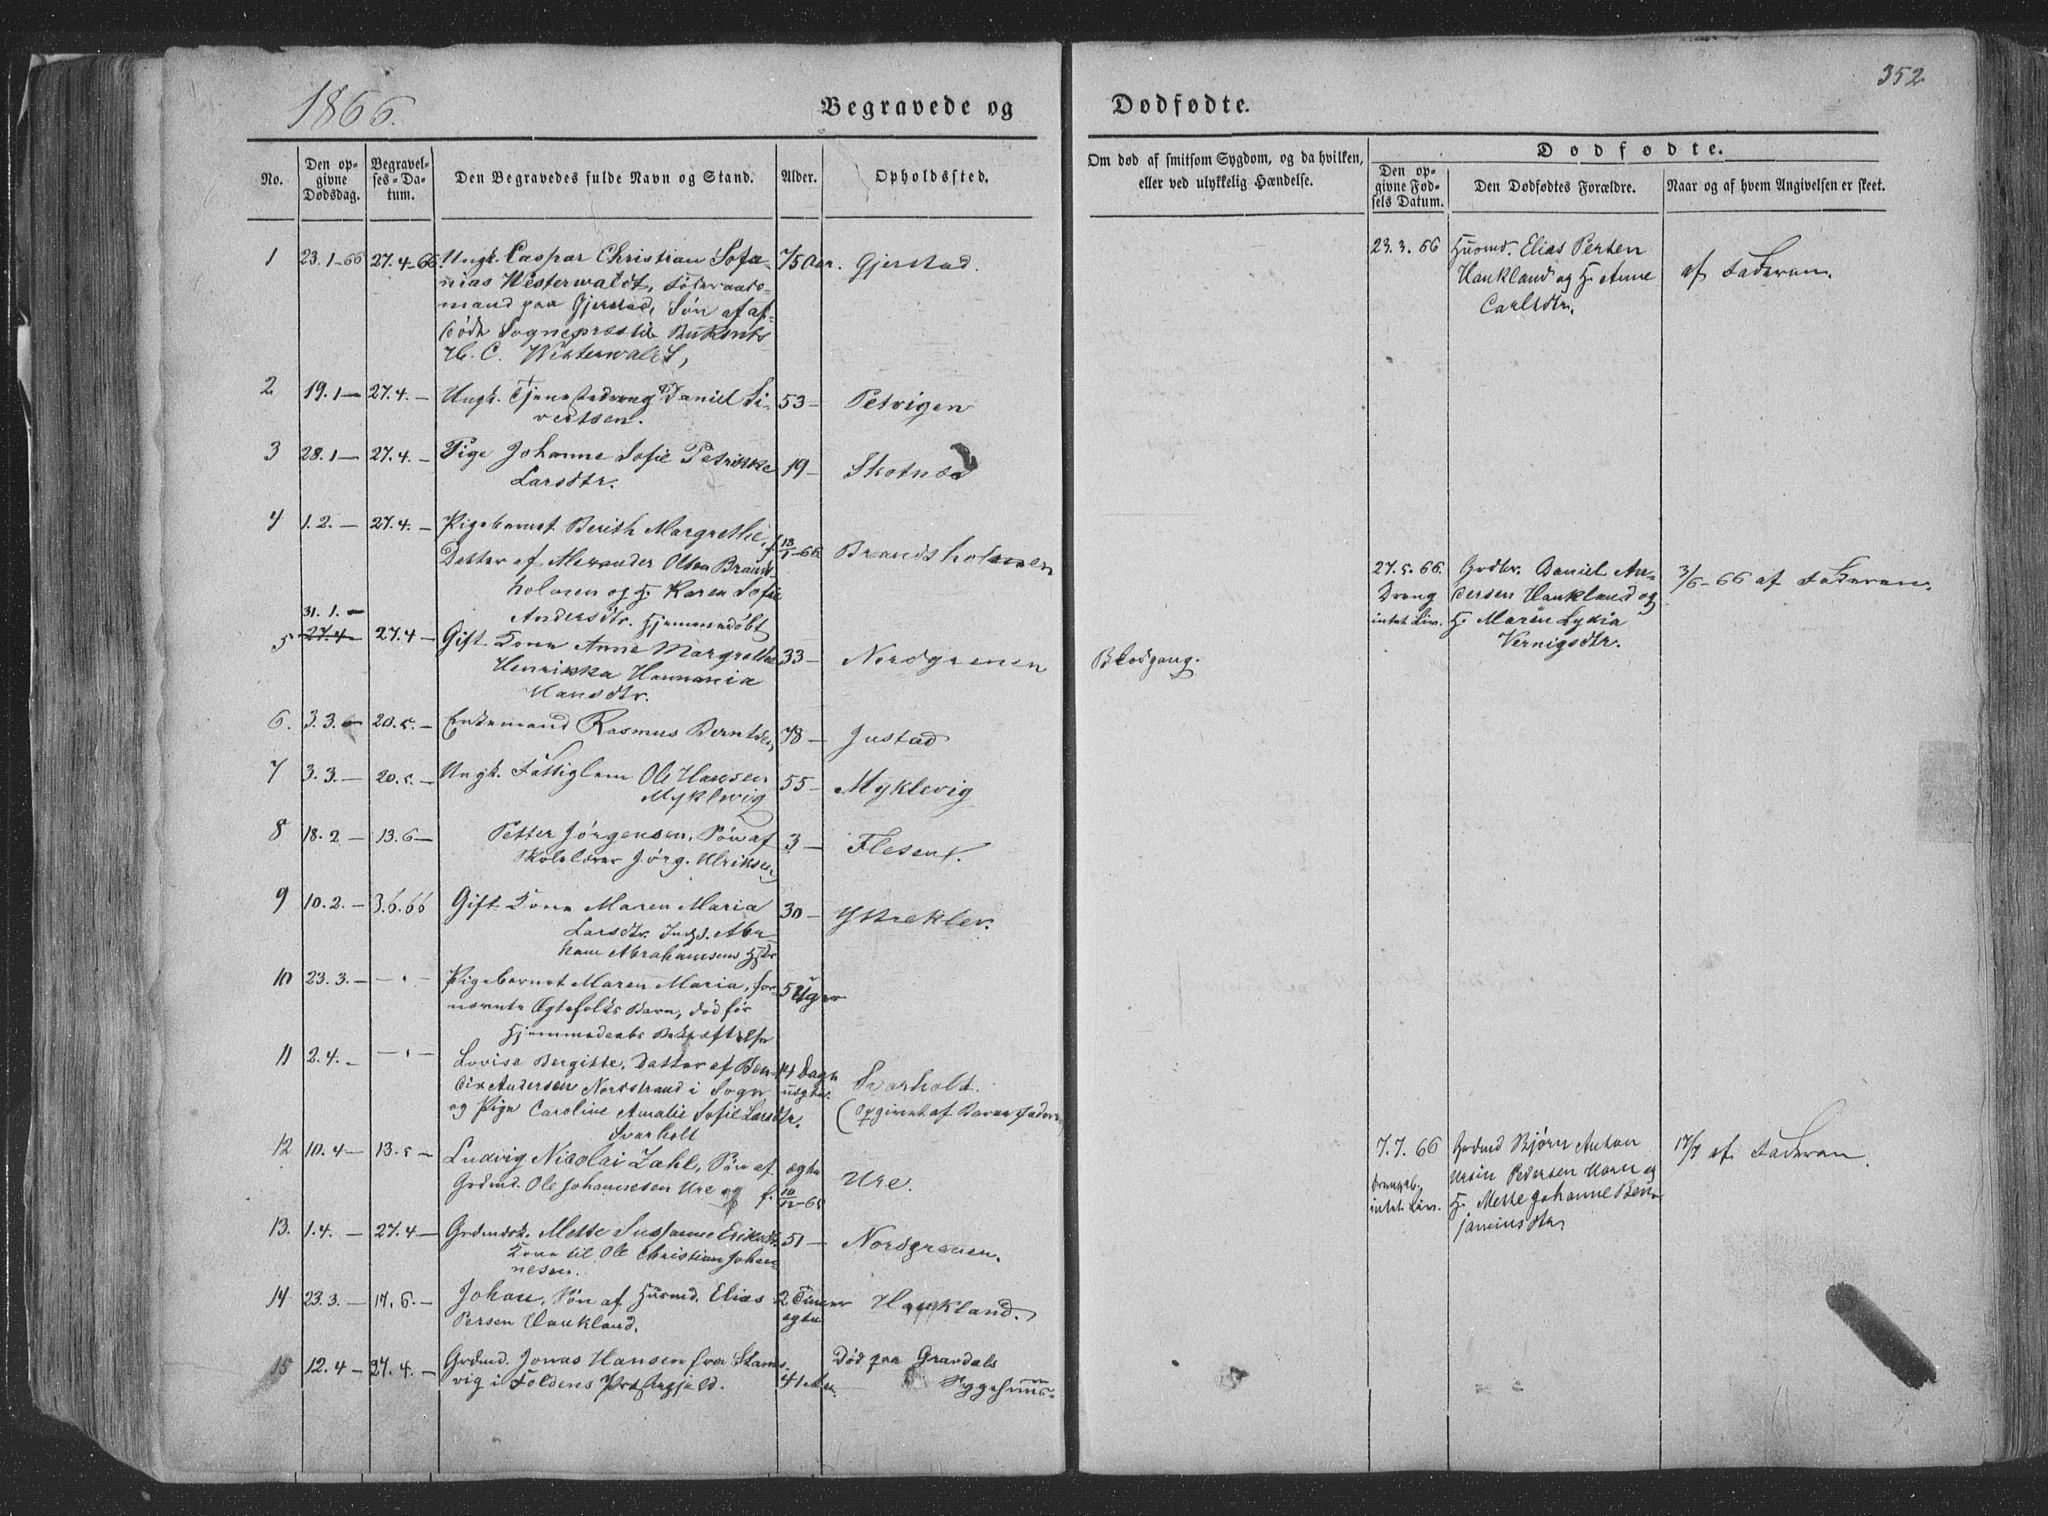 352
1866.
Begravede og Dødfødte.
No.
Den opgivne Dødsdag.
Begravelses-Datum.
Den Begravedes fulde Navn og Stand.
Alder.
Opholdssted.
Om død af smitsom Sygdom, og da hvilken, eller ved ulykkelig Hændelse.
Dødfødte.
Den opgivne Fødsels Datum.
Den Dødfødtes Forældre.
Naar og af hvem Angivelsen er skeet.
1 23.1-66 27.4-66 Ungk. Caspar Christian Sofa- 75 Aar. Gjerstad.
nias Westerwaldt, Føderaads-
mand paa Gjerstad, Søn af af-
døde Sognepræst til Buksnes
H. C. Westerwaldt,
2 19.1— 27.4.— Ungk. Tjenestedreng Daniel Si- 53— Petvigen
vertsen.
3 28.1— 27.4.— Pige Johanne Sofie Petrikke 19— Skotnæs
Larsdtr.
4 1.2.— 27.4.— Pigebarnet Berith Margrethe, f. 13/1-66 Brandsholmen
Datter af Alexander Olsen Brands-
holmen og H. Karen Sofie
Andersdtr. Hjemmedøbt
31.1.—
5 27.4 27.4— Gift Kone Anne Margrethe 33— Nordgrenen Blodgang.
Henrikka Hannania
Hansdtr.
6. 3.3.— 20.5.— Enkemand Rasmus Berntsen, 78— Justad
7 3.3.— 20.5.— Ungk. Fattiglem Ole Hansen 55— Myklevig
Myklevig
8 18.2— 13.6— Petter Jørgensen, Søn af 3— Flesen
Skolelærer Jørg. Ulriksen,
9 10.2.— 3.6.66 Gift Kone Maren Maria 30— Ystrekler.
Larsdtr. Inds. Abra-
ham Abrahamsens
10 23.3.— —"— Pigebarnet Maren Maria, for- 5 Uger
nævnte Ægtefolks Barn, død før
Hjemmedaabs Bekræftelse
11 2.4.— —"— Lovise Bergitte, Datter af Ben- 14 Dage Svarholt.
dix Andersen Nordstrand i Sogn uægte. (Opgivent af Barnefaderen)
og Pige Caroline Amalie Sofie Larsdtr.
Svarholt
12 10.4— 13.5— Ludvig Nicolai Zahl, Søn af ægte Ure.
Grdmd. Ole Johannesen Ure og f. 10/12-65
13. 1.4.— 27.4— Grdmdsk. Mette Susanne Eriksdtr. 51— Nordgrenen.
Kone til Ole Christian Johan-
nesen.
14 23.3.— 17.6.— Johan, Søn af Husmd. Elias 2 Timer Haukland.
Persen Haukland. ægte
15 12.4— 27.4.— Grdmd. Jonas Hansen fra Stams- 41 Død paa Gravdals
vig i Foldens Præstegjeld. Sygehuus.
23.3.66 Husmd. Elias Persen af Faderen.
Haukland og H. Anne
Carlsdtr.
27.5.66. Grdbr. Daniel An- 3/6-66 af Faderen.
Dreng dersen Haukland og
intet Liv. H. Maren Lydia
Vernigsdtr.
7.7.66 Grdmd Bjørn Anton 17/7 af Faderen.
Drengeb. Ursin Pedersen og
intet Liv. H. Mette Johanne Ben-
jaminsdtr